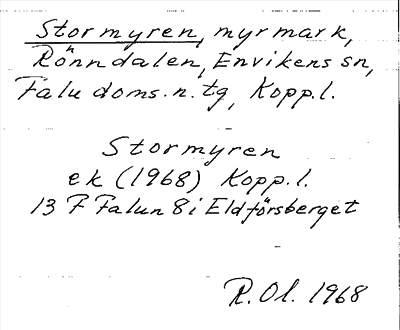 Stormyren, myrmark,
Rönndalen, Envikens sn,
Falu doms.n.tg, Kopp.l.
Stormyren
ek (1968) Kopp.l.
13 F Falun 8i Eldforsberget
R.Ol. 1968